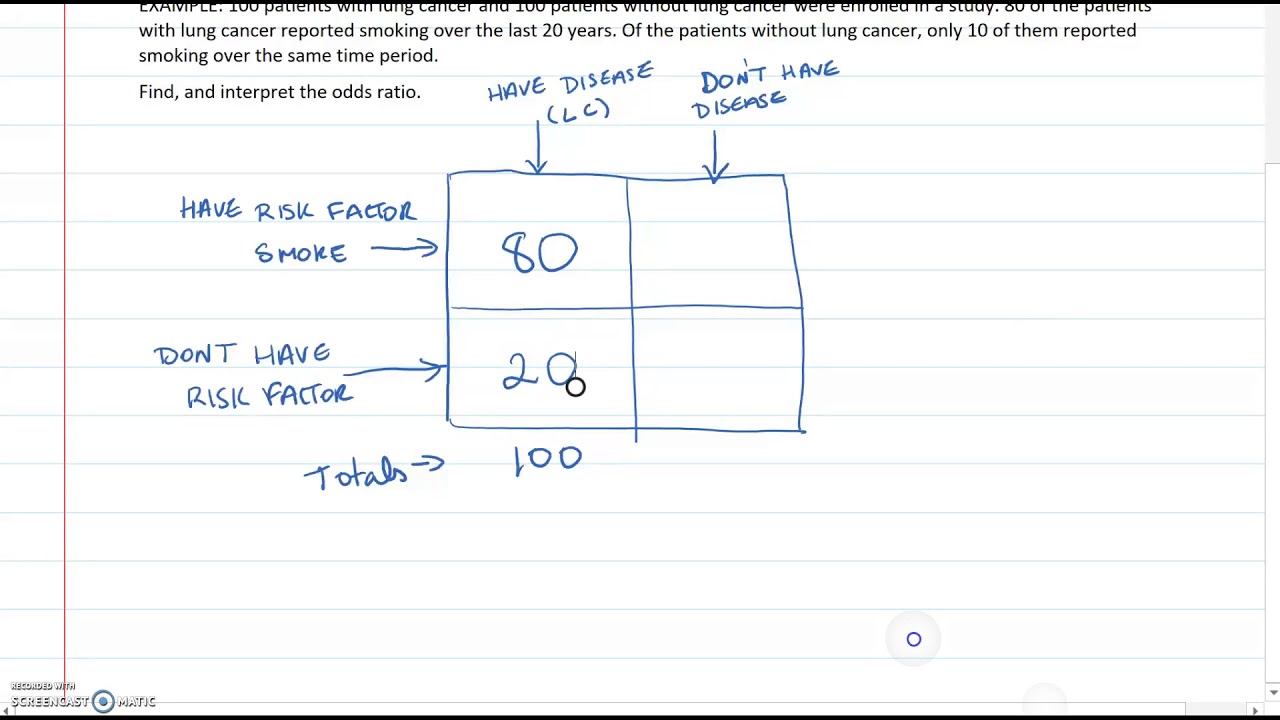 EXAMPLE: 100 patients with lung cancer and 100 patients without lung cancer were enrolled in a study. 80 of the patients
with lung cancer reported smoking over the last 20 years. Of the patients without lung cancer, only 10 of them reported
smoking over the same time period.
Find, and interpret the odds ratio.
HAVE DISEASE
(LC)
DON'T HAVE
DISEASE
HAVE RISK FACTOR
SMOKE
80
DONT HAVE
RISK FACTOR
20
Totals
100
RECORDED WITH
SCREENCAST MATIC